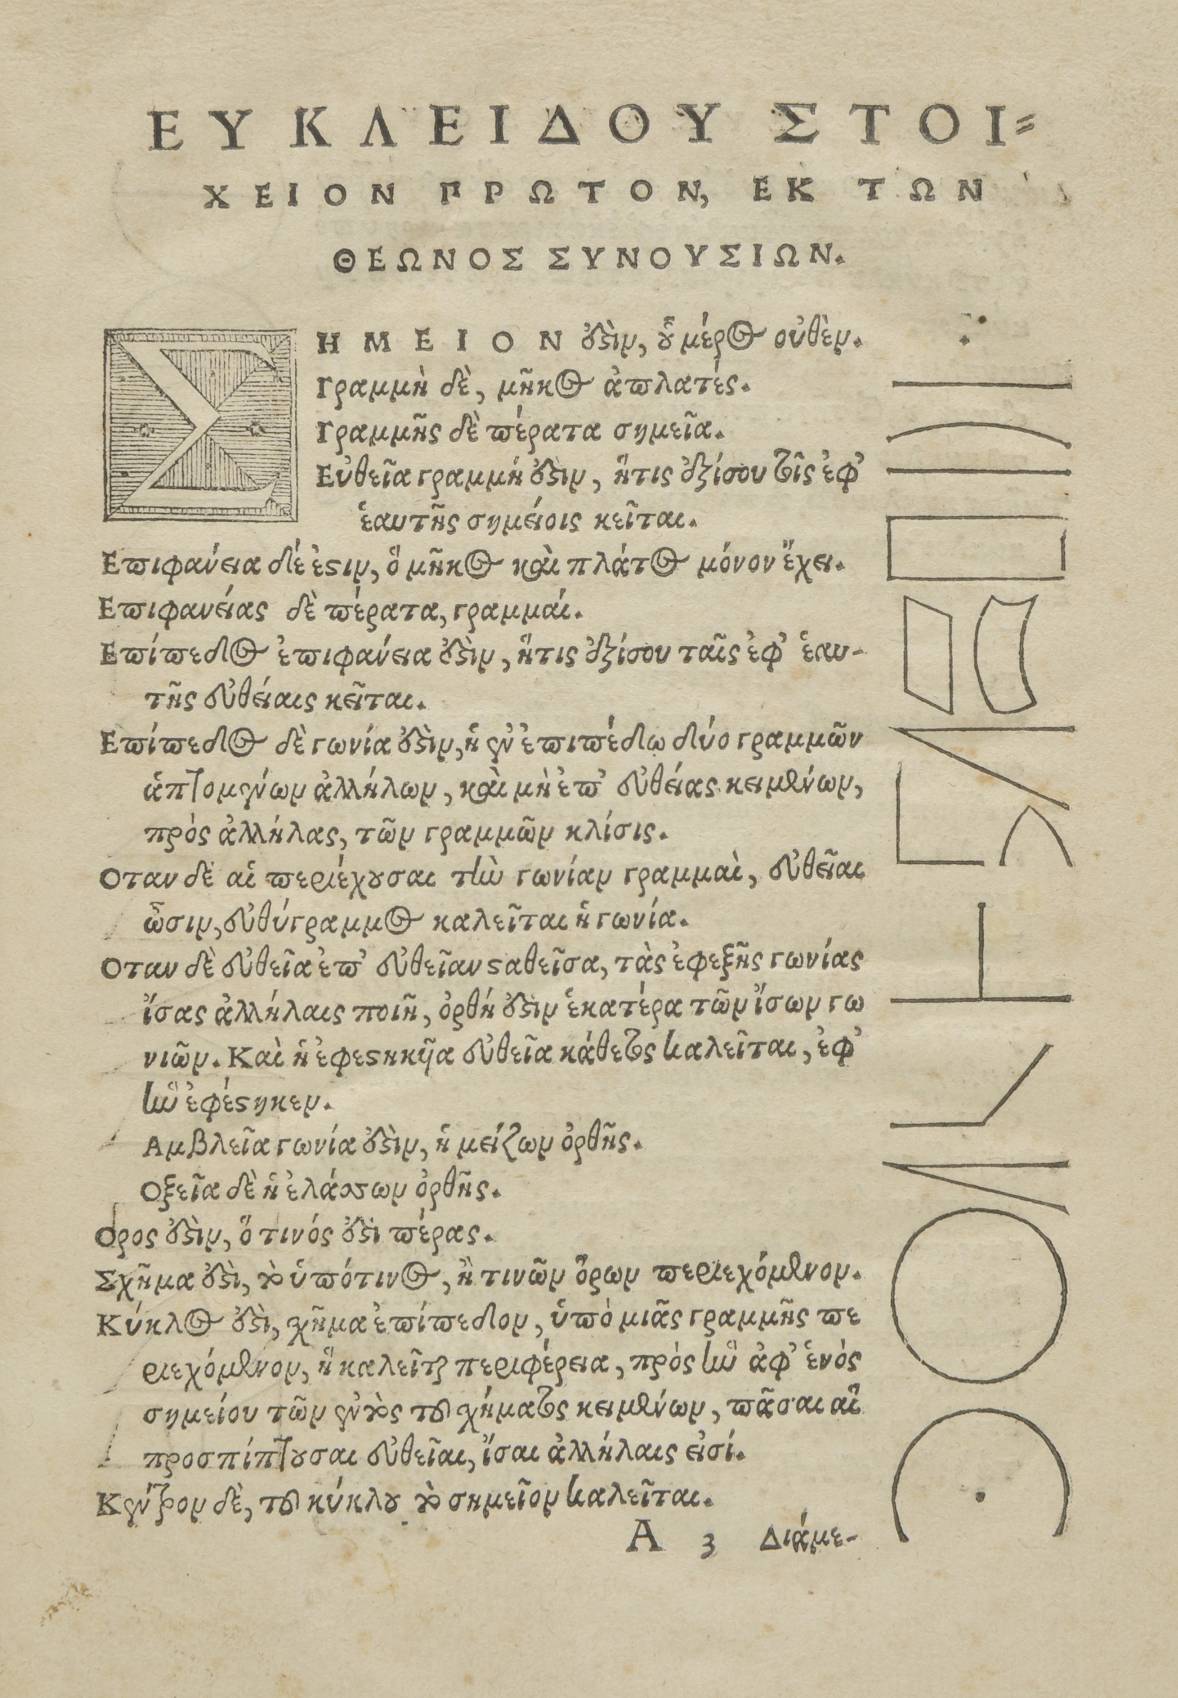 ΕΥΚΛΕΙΔΟΥ ΣΤΟΙ=
ΧΕΙΟΝ ΠΡΩΤΟΝ, ΕΚ ΤΩΝ
ΘΕΩΝΟΣ ΣΥΝΟΥΣΙΩΝ.
ΣΗΜΕΙΟΝ ὅξὶν, οὗ μέρος οὐθὲν.
Γραμμὴ δὲ, μῆκος ἀπλατές.
Γραμμῆς δὲ πέρατα σημεῖα.
Εὐθεῖα γραμμή ἐστιν, ἥτις ἐξίσου τοῖς ἐφ᾽
ἑαυτῆς σημείοις κεῖται.
Επιφάνεια δέ ἐστιν, ὃ μῆκος καὶ πλάτος μόνον ἔχει.
Επιφανείας δὲ πέρατα, γραμμαί.
Επίπεδος ἐπιφάνεια ἐστὶν, ἥτις ἐξίσου ταῖς ἐφ᾽ ἑαυ-
τῆς εὐθείαις κεῖται.
Επίπεδος δὲ γωνία ἐστὶν, ἡ ἐν ἐπιπέδῳ δύο γραμμῶν
ἁπτομένων ἀλλήλων, καὶ μὴ ἐπ᾽ εὐθείας κειμένων,
πρὸς ἀλλήλας, τῶν γραμμῶν κλίσις.
Οταν δὲ αἱ περιέχουσαι τὴν γωνίαν γραμμαὶ, εὐθεῖαι
ὦσιν, εὐθύγραμμος καλεῖται ἡ γωνία.
Οταν δὲ εὐθεῖα ἐπ᾽ εὐθεῖαν σταθεῖσα, τὰς ἐφεξῆς γωνίας
ἴσας ἀλλήλαις ποιῇ, ὀρθή ἐστιν ἑκατέρα τῶν ἴσων γω
νιῶν. Καὶ ἡ ἐφεστηκῆα εὐθεῖα κάθετος καλεῖται, ἐφ᾽
ἣν ἐφέστηκεν.
Αμβλεῖα γωνία ἐστὶν, ἡ μείζων ὀρθῆς.
Οξεῖα δὲ ἡ ἐλάσσων ὀρθῆς.
Ορος ἐστὶν, ὅ τινός ἐστι πέρας.
Σχῆμα ἐστὶ, τὸ ὑπότινος, ἤ τινῶν ὅρων περιεχόμενον.
Κύκλος ἐστὶ, σχῆμα ἐπίπεδον, ὑπὸ μιᾶς γραμμῆς πε
ριεχόμενον, ἣ καλεῖται περιφέρεια, πρὸς ἣν ἀφ᾽ ἑνὸς
σημείου τῶν ἐντὸς τοῦ σχήματος κειμένων, πᾶσαι αἱ
προσπίπτουσαι εὐθεῖαι, ἴσαι ἀλλήλαις εἰσί.
Κέντρον δὲ, τοῦ κύκλου τὸ σημεῖον καλεῖται.
Α 3 Διάμε-